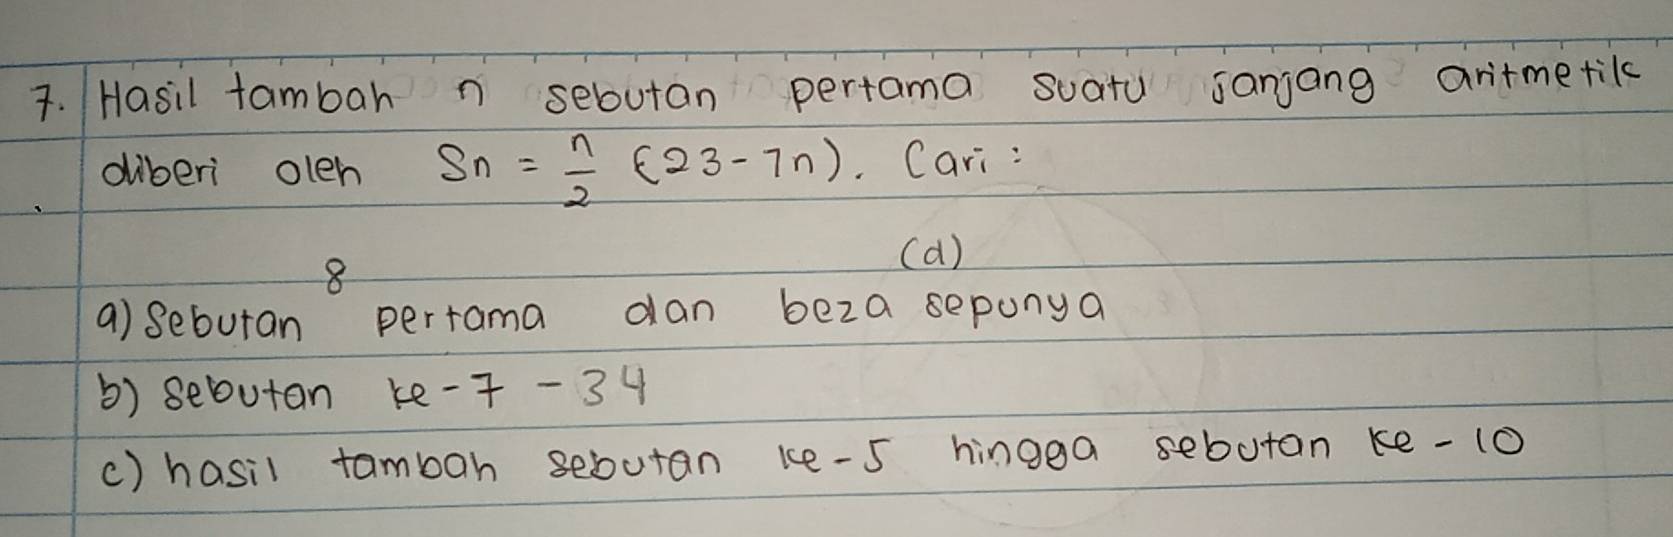 7. Hasil tambah n sebutan pertama suatu janjang aritmetik
diberi oleh Sn = n/2 (23-7n). Cari :
(d)
8
a) Sebutan pertama dan beza sepunya
b) Sebutan ke-7 -34
c) hasil tambah sebutan ke-5 hingga sebutan ke-10